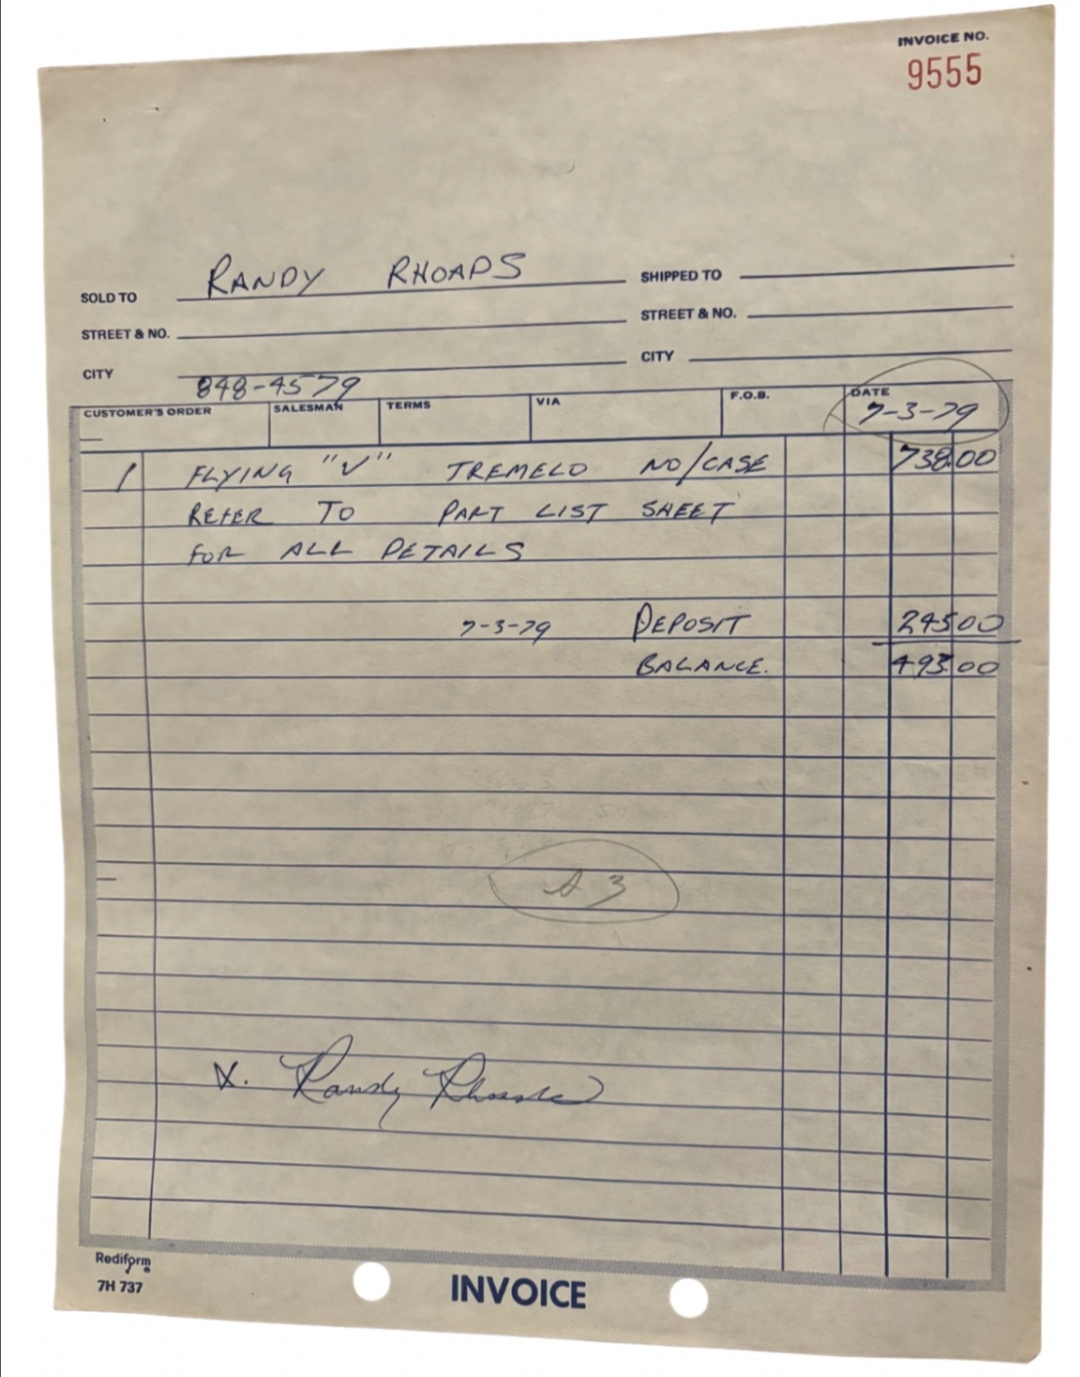 INVOICE NO.
9555
SOLD TO RANDY RHOADS
SHIPPED TO
STREET & NO.
STREET & NO.
CITY
CITY
848-4579
CUSTOMER'S ORDER SALESMAN TERMS VIA F.O.B. DATE
7-3-79
1 FLYING "V" TREMELO NO/CASE 738.00
REFER TO PART LIST SHEET
FOR ALL DETAILS
7-3-79 DEPOSIT 245 00
BALANCE. 493.00
A3
X. Randy Rhoads
Rediform
7H 737
INVOICE